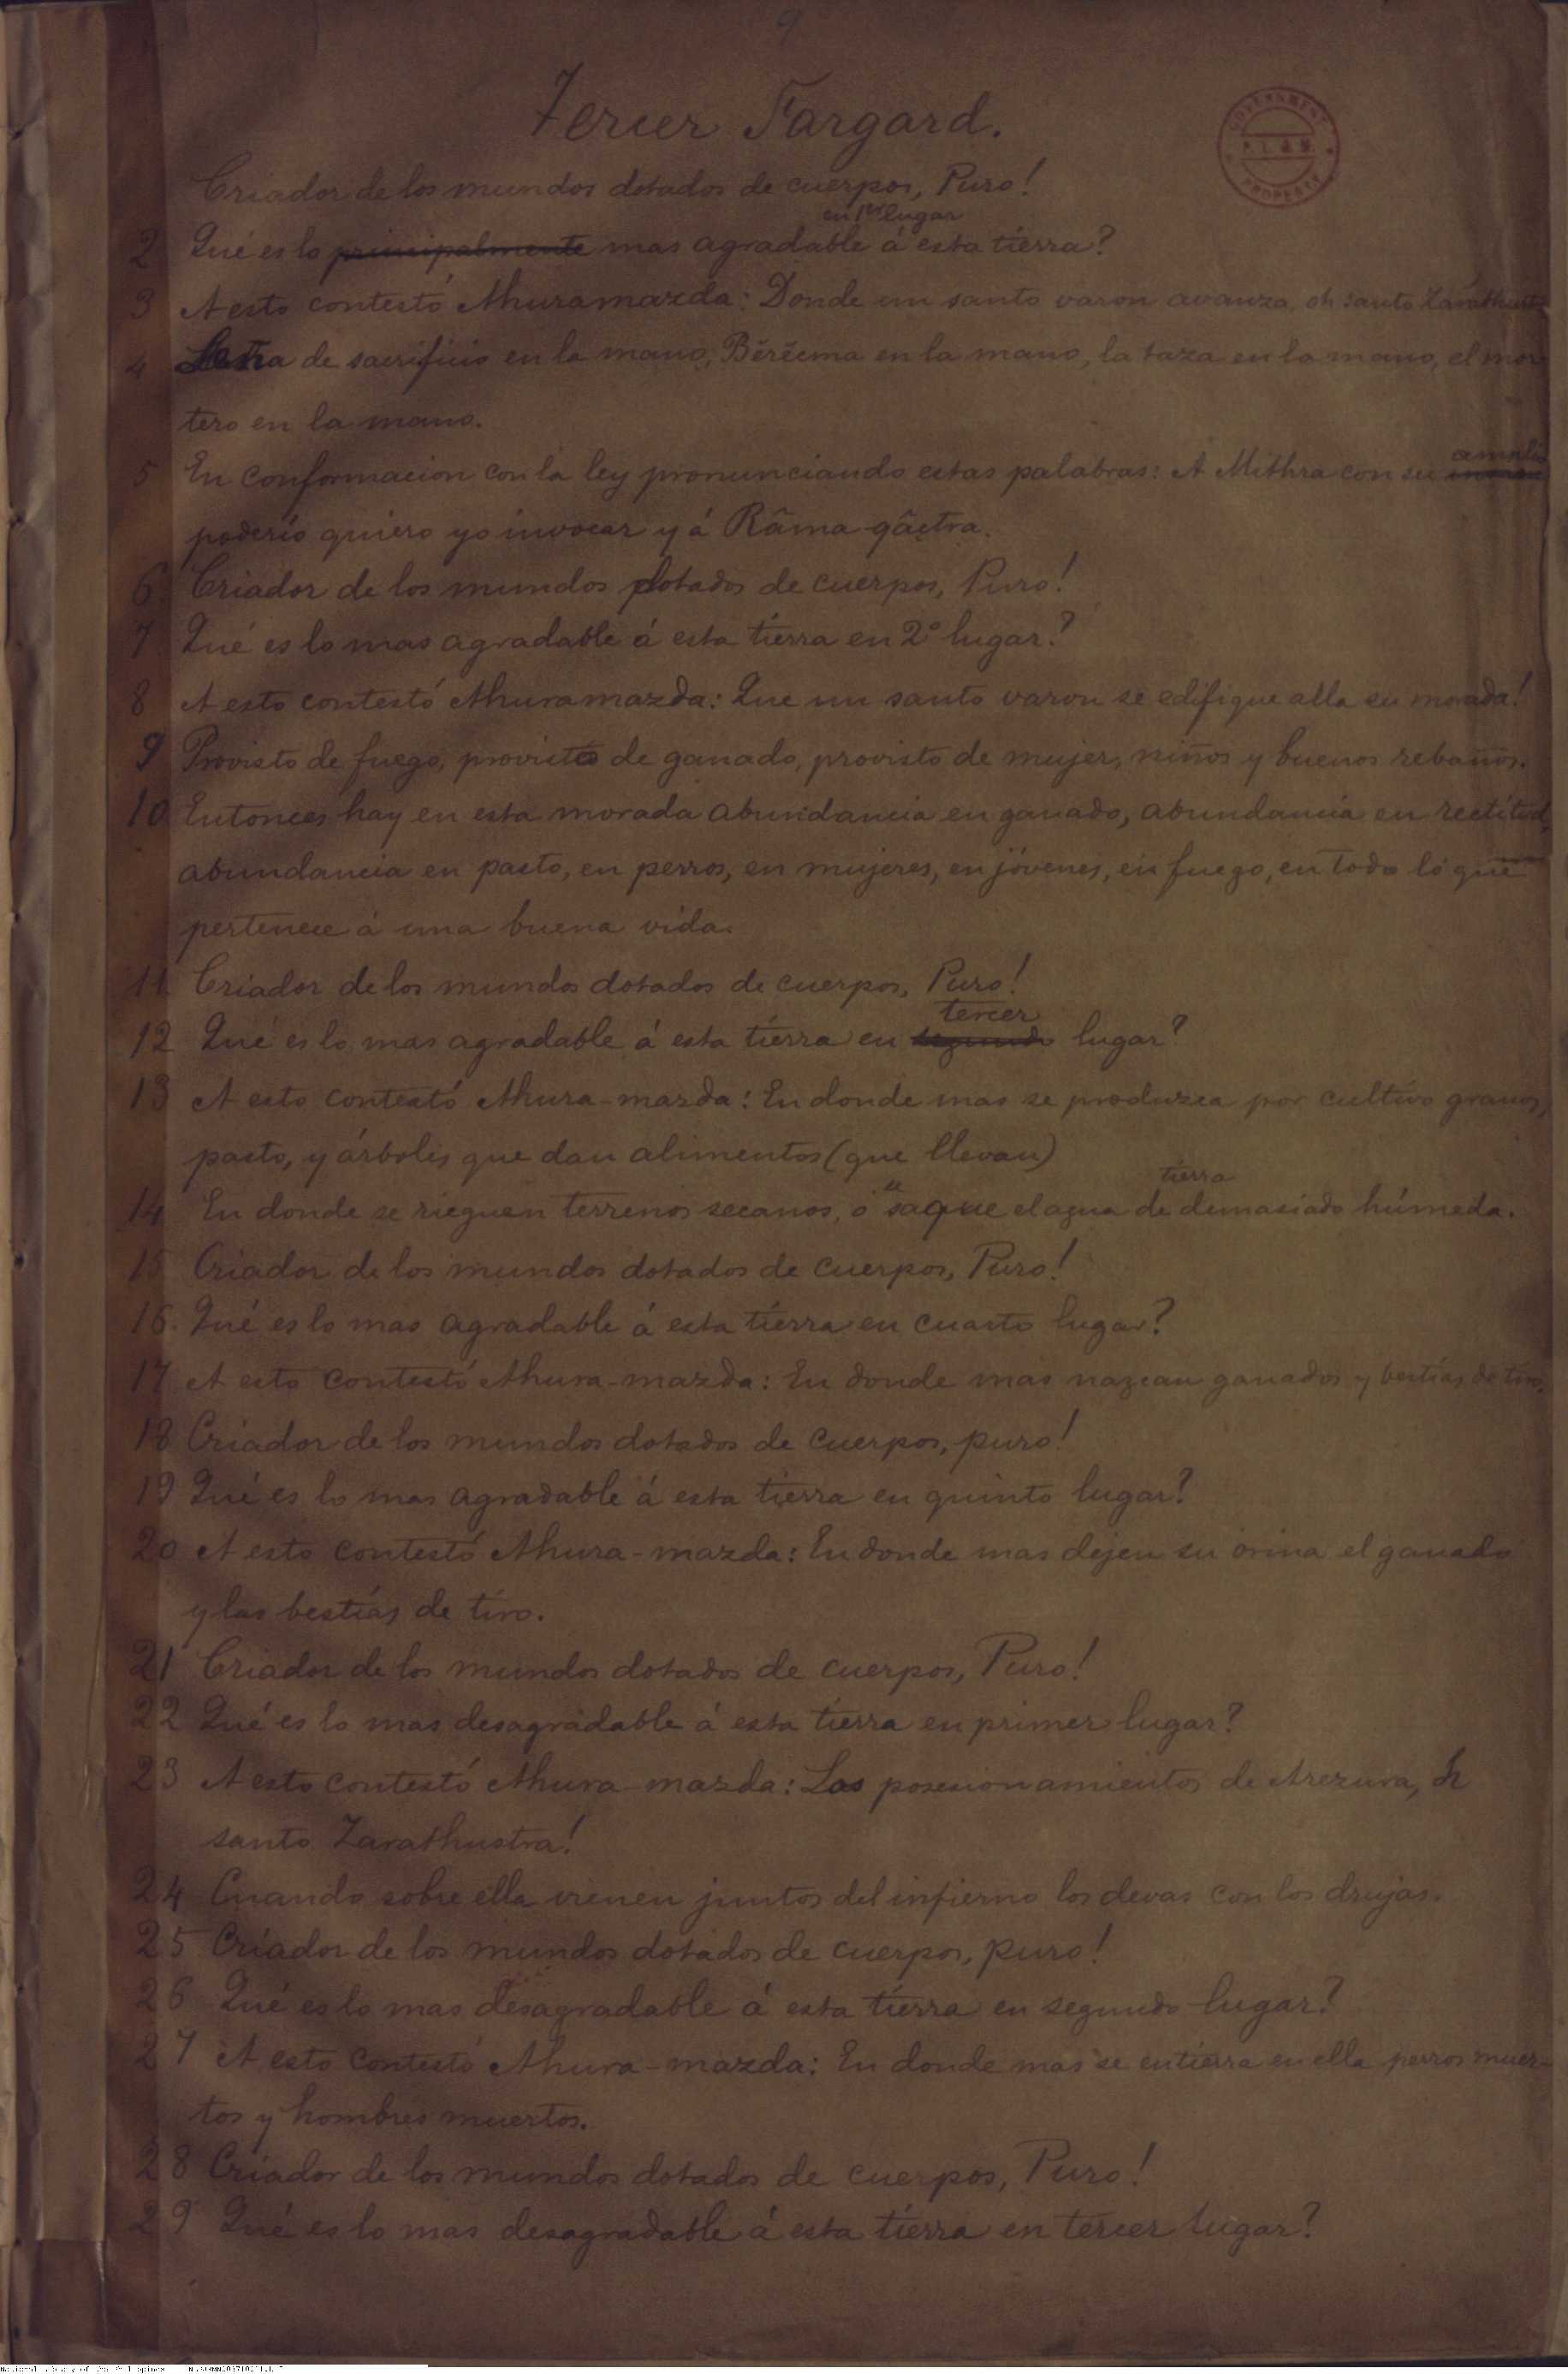 9
Tercer Fargard.
GOVERNMENT
PROPERTY
Criador de los mundos dotados de cuerpos, Puro!
en 1er lugar
2 Qué es lo principalmente mas agradable á esta tierra?
3 A esto contestó Ahuramazda: Donde un santo varon avanza, oh santo Zarathust
4 Leña de sacrificio en la mano, Bĕrĕcma en la mano, la taza en la mano, el mor
tero en la mano.
amplio
5 En conformacion con la ley pronunciando estas palabras: A Mithra con su
poderío quiero yo invocar y á Râma-qâçtra.
6 Criador de los mundos dotados de cuerpos, Puro!
7 Qué es lo mas agradable á esta tierra en 2º lugar?
8 A esto contestó Ahuramazda: Que un santo varon se edifique alla su morada!
9 Provisto de fuego, provisto de ganado, provisto de mujer, niños y buenos rebaños.
10 Entonces hay en esta morada abundancia en ganado, abundancia en rectitud,
abundancia en pasto, en perros, en mujeres, en jóvenes, en fuego, en todo lo que
pertenece á una buena vida.
11 Criador de los mundos dotados de cuerpos, Puro!
tercer
12 Qué es lo mas agradable á esta tierra en segundo lugar?
13 A esto contestó Ahura-mazda: En donde mas se produzca por cultivo granos,
pasto, y árboles que dan alimentos (que llevan)
tierra
14 En donde se rieguen terrenos secanos, ó saque el agua de demasiado húmeda.
15 Criador de los mundos dotados de cuerpos, Puro!
16. Qué es lo mas agradable á esta tierra en cuarto lugar?
17 A esto contestó Ahura-mazda: En donde mas nazcan ganados y bestias de tiro.
18 Criador de los mundos dotados de cuerpos, puro!
19 Qué es lo mas agradable á esta tierra en quinto lugar?
20 A esto contestó Ahura-mazda: En donde mas dejen su orina el ganado
y las bestias de tiro.
21 Criador de los mundos dotados de cuerpos, Puro!
22 Qué es lo mas desagradable á esta tierra en primer lugar?
23 A esto contestó Ahura-mazda: Los posesionamientos de Arezura, oh
santo Zarathustra!
24 Cuando sobre ella vienen juntos del infierno los devas con los drujas.
25 Criador de los mundos dotados de cuerpos, puro!
26 Qué es lo mas desagradable á esta tierra en segundo lugar?
27 A esto contestó Ahura-mazda: En donde mas se entierra en ella perros muer-
tos y hombres muertos.
28 Criador de los mundos dotados de cuerpos, Puro!
29 Qué es lo mas desagradable á esta tierra en tercer lugar?